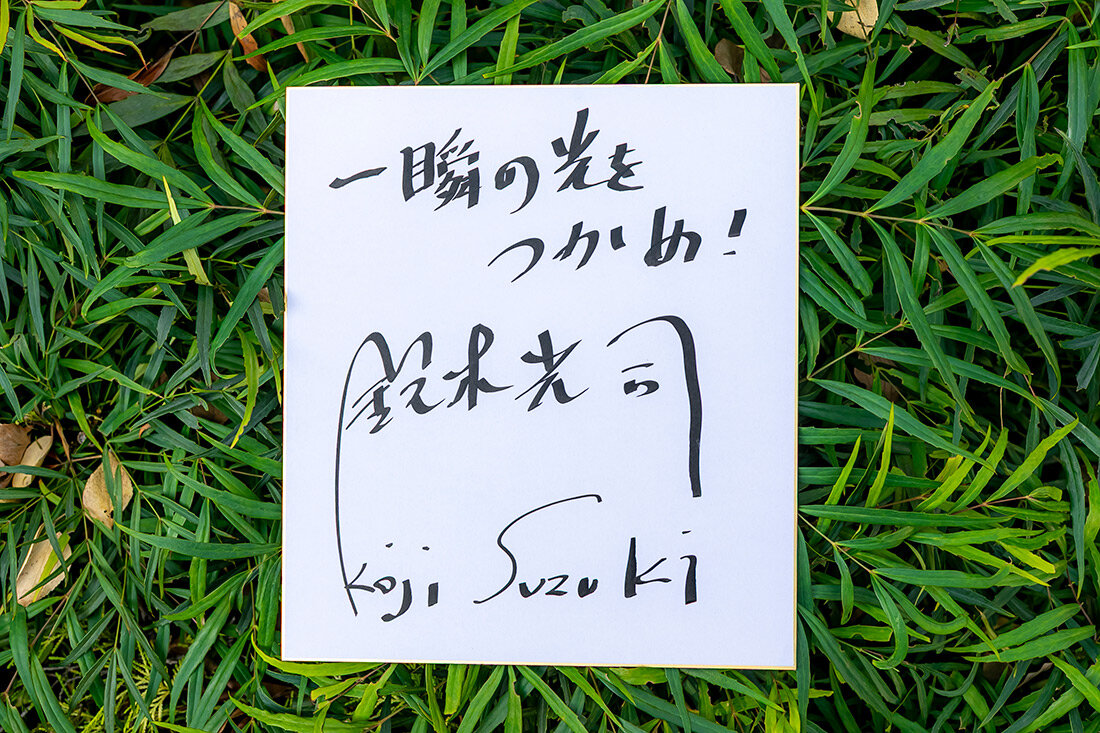 一瞬の光を
つかめ!
鈴木光司
Koji Suzuki